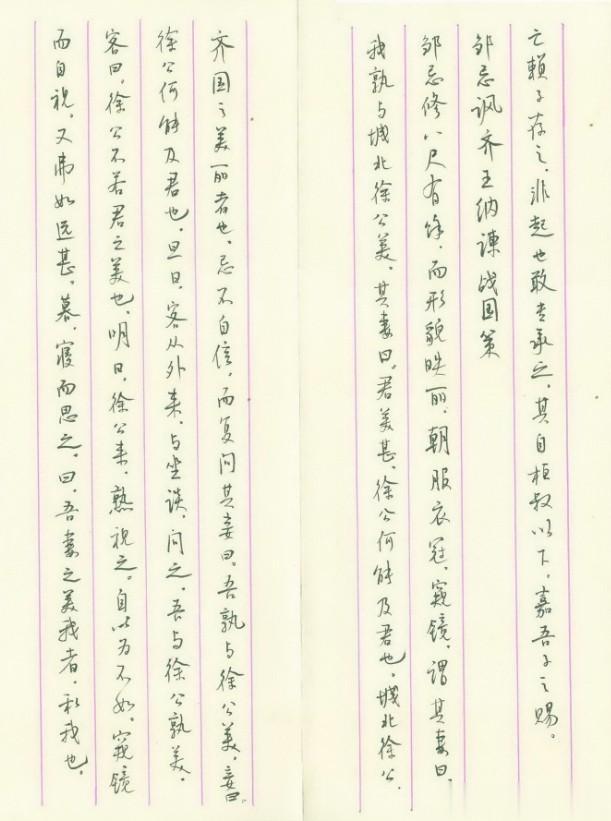 亡赖子存之。非起也敢专承之。其自桓叔以下。嘉吾子之赐。
邹忌讽齐王纳谏战国策
邹忌修八尺有余。而形貌昳丽。朝服衣冠。窥镜。谓其妻曰。
我孰与城北徐公美。其妻曰。君美甚。徐公何能及君也。城北徐公。
齐国之美丽者也。忌不自信。而复问其妾曰。吾孰与徐公美。妾曰。
徐公何能及君也。旦日。客从外来。与坐谈。问之。吾与徐公孰美。
客曰。徐公不若君之美也。明日。徐公来。熟视之。自以为不如。窥镜
而自视。又弗如远甚。暮。寝而思之。曰。吾妻之美我者。私我也。